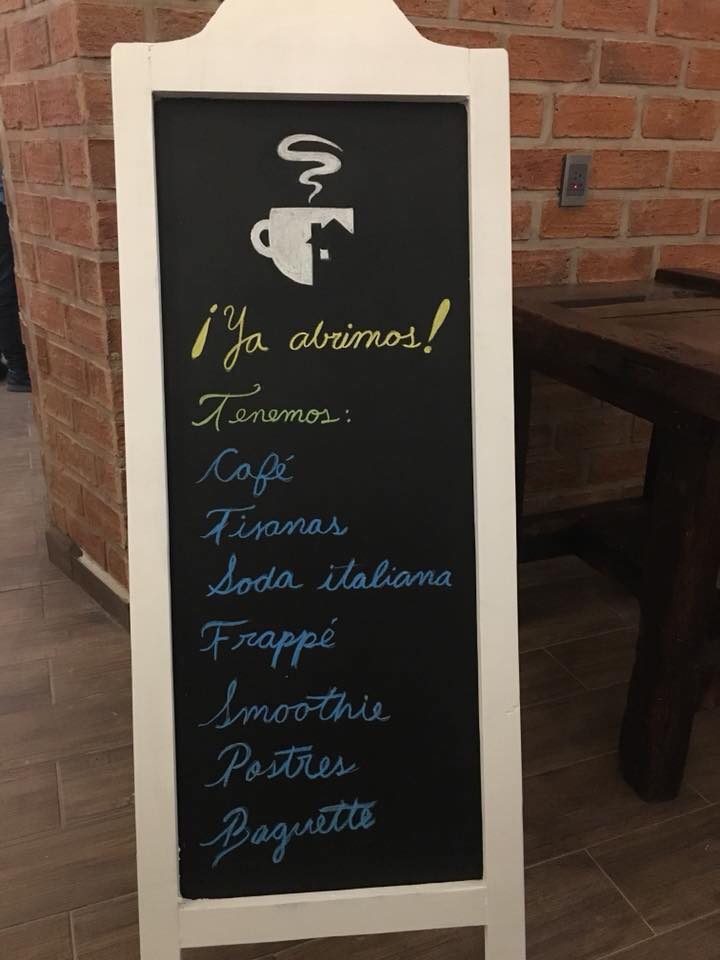 ¡Ya abrimos!
Tenemos:
Café
Tisanas
Soda italiana
Frappé
Smoothie
Postres
Baguette